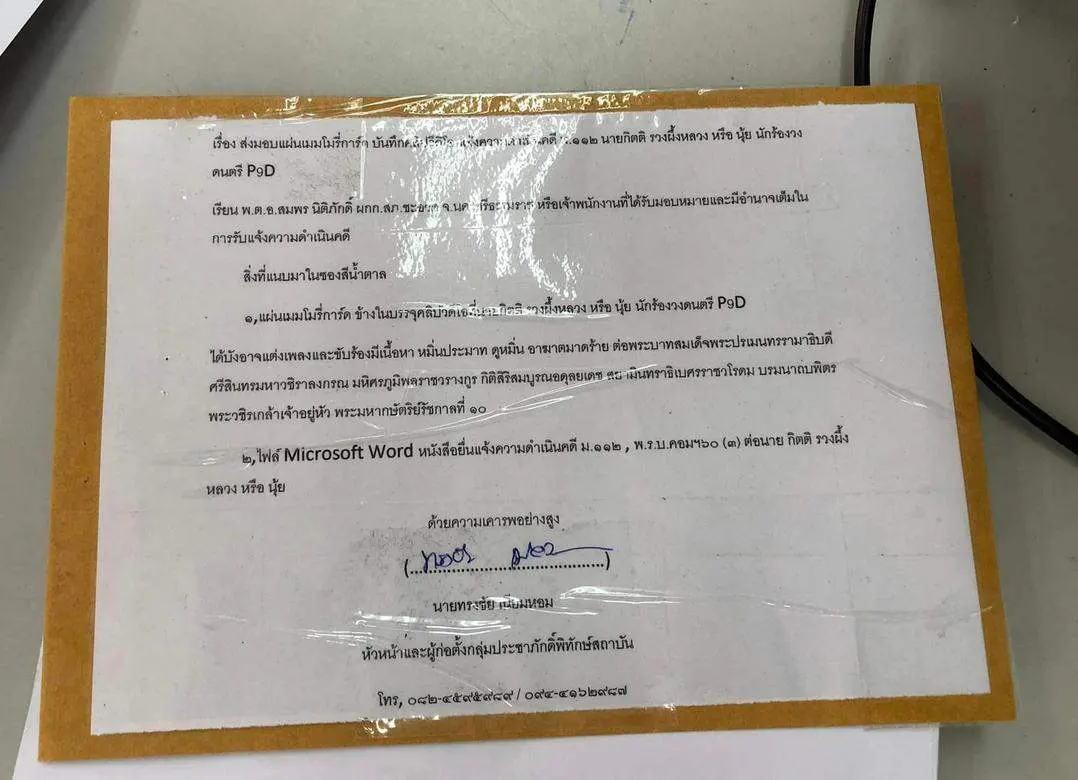 เรื่อง ส่งมอบแผ่นเมมโมรี่การ์ด บันทึกคลิปวีดีโอ แจ้งความดำเนินคดี ม.๑๑๒ นายกิตติ รวงผึ้งหลวง หรือ นุ้ย นักร้องวง
ดนตรี P๑D
เรียน พ.ต.อ.สมพร นิติภักดิ์ ผกก.สภ.ชะอวด จ.นครศรีธรรมราช หรือเจ้าพนักงานที่ได้รับมอบหมายและมีอำนาจเต็มใน
การรับแจ้งความดำเนินคดี
สิ่งที่แนบมาในซองสีน้ำตาล
๑,แผ่นเมมโมรี่การ์ด ข้างในบรรจุคลิปวีดีโอที่นายกิตติ รวงผึ้งหลวง หรือ นุ้ย นักร้องวงดนตรี P๑D
ได้บังอาจแต่งเพลงและขับร้องมีเนื้อหา หมิ่นประมาท ดูหมิ่น อาฆาตมาดร้าย ต่อพระบาทสมเด็จพระปรเมนทรรามาธิบดี
ศรีสินทรมหาวชิราลงกรณ มหิศรภูมิพลราชวรางกูร กิติสิริสมบูรณอดุลยเดช สยามินทราธิเบศรราชวโรดม บรมนาถบพิตร
พระวชิรเกล้าเจ้าอยู่หัว พระมหากษัตริย์รัชกาลที่ ๑๐
๒,ไฟล์ Microsoft Word หนังสือยื่นแจ้งความดำเนินคดี ม.๑๑๒ , พ.ร.บ.คอมฯ๖๐ (๓) ต่อนาย กิตติ รวงผึ้ง
หลวง หรือ นุ้ย
ด้วยความเคารพอย่างสูง
(....................................)
นายทรงชัย เนียมหอม
หัวหน้าและผู้ก่อตั้งกลุ่มประชาภักดิ์พิทักษ์สถาบัน
โทร, ๐๘๒-๔๕๙๕๙๘๙ / ๐๙๔-๔๑๖๒๙๘๗